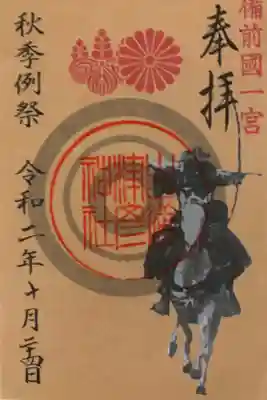 備前國一宮
奉拝
吉備津彦神社
秋季例祭
令和二年十月二十四日